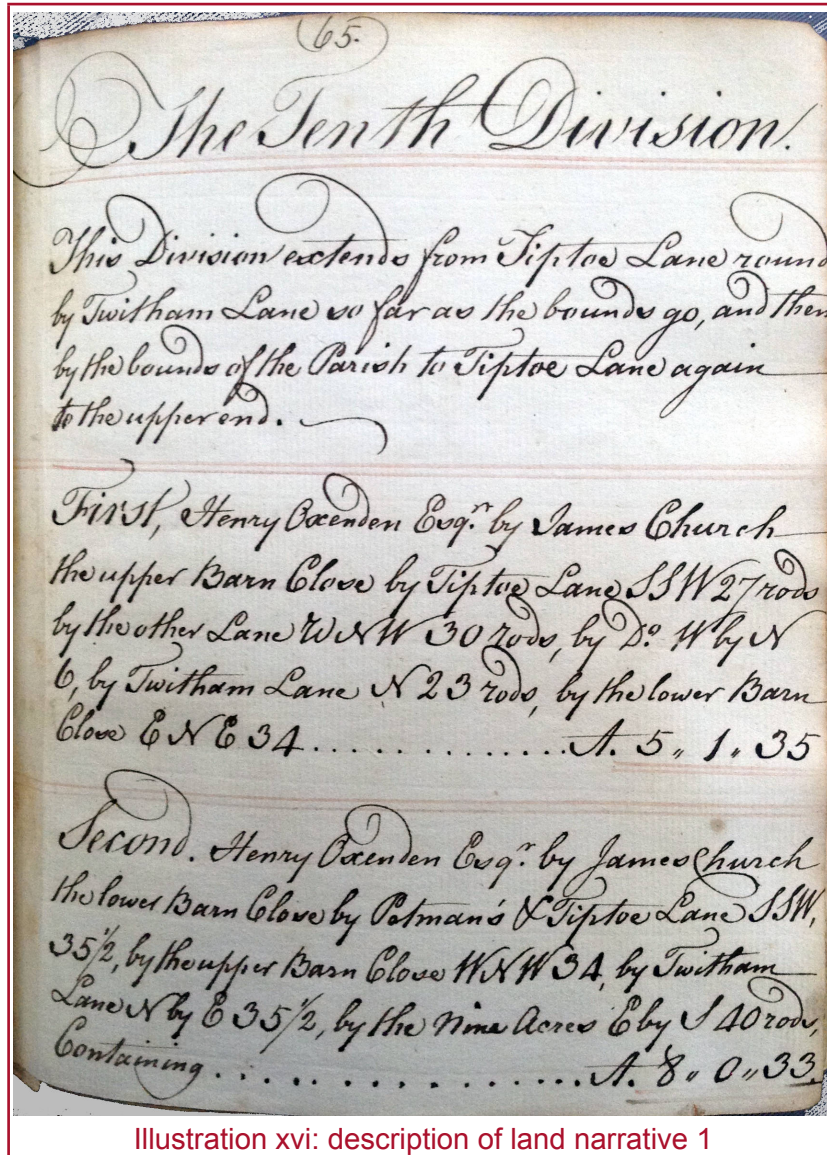 65.
The Tenth Division.
This Division extends from Tiptoe Lane round
by Twitham Lane so far as the bounds go, and then
by the bounds of the Parish to Tiptoe Lane again
to the upper end.
First, Henry Oxenden Esqr. by James Church
the upper Barn Close by Tiptoe Lane SSW 27 rods
by the other Lane WNW 30 rods, by Do. W by N
6, by Twitham Lane N 23 rods, by the lower Barn
Close ENE 34..............A. 5 „ 1 „ 35
Second. Henry Oxenden Esqr. by James Church
the lower Barn Close by Petman's & Tiptoe Lane SSW,
35½, by the upper Barn Close WNW 34, by Twitham
Lane N by E 35½, by the Nine Acres E by S 40 rods,
Containing.................A. 8 „ 0 „ 33.
Illustration xvi: description of land narrative 1